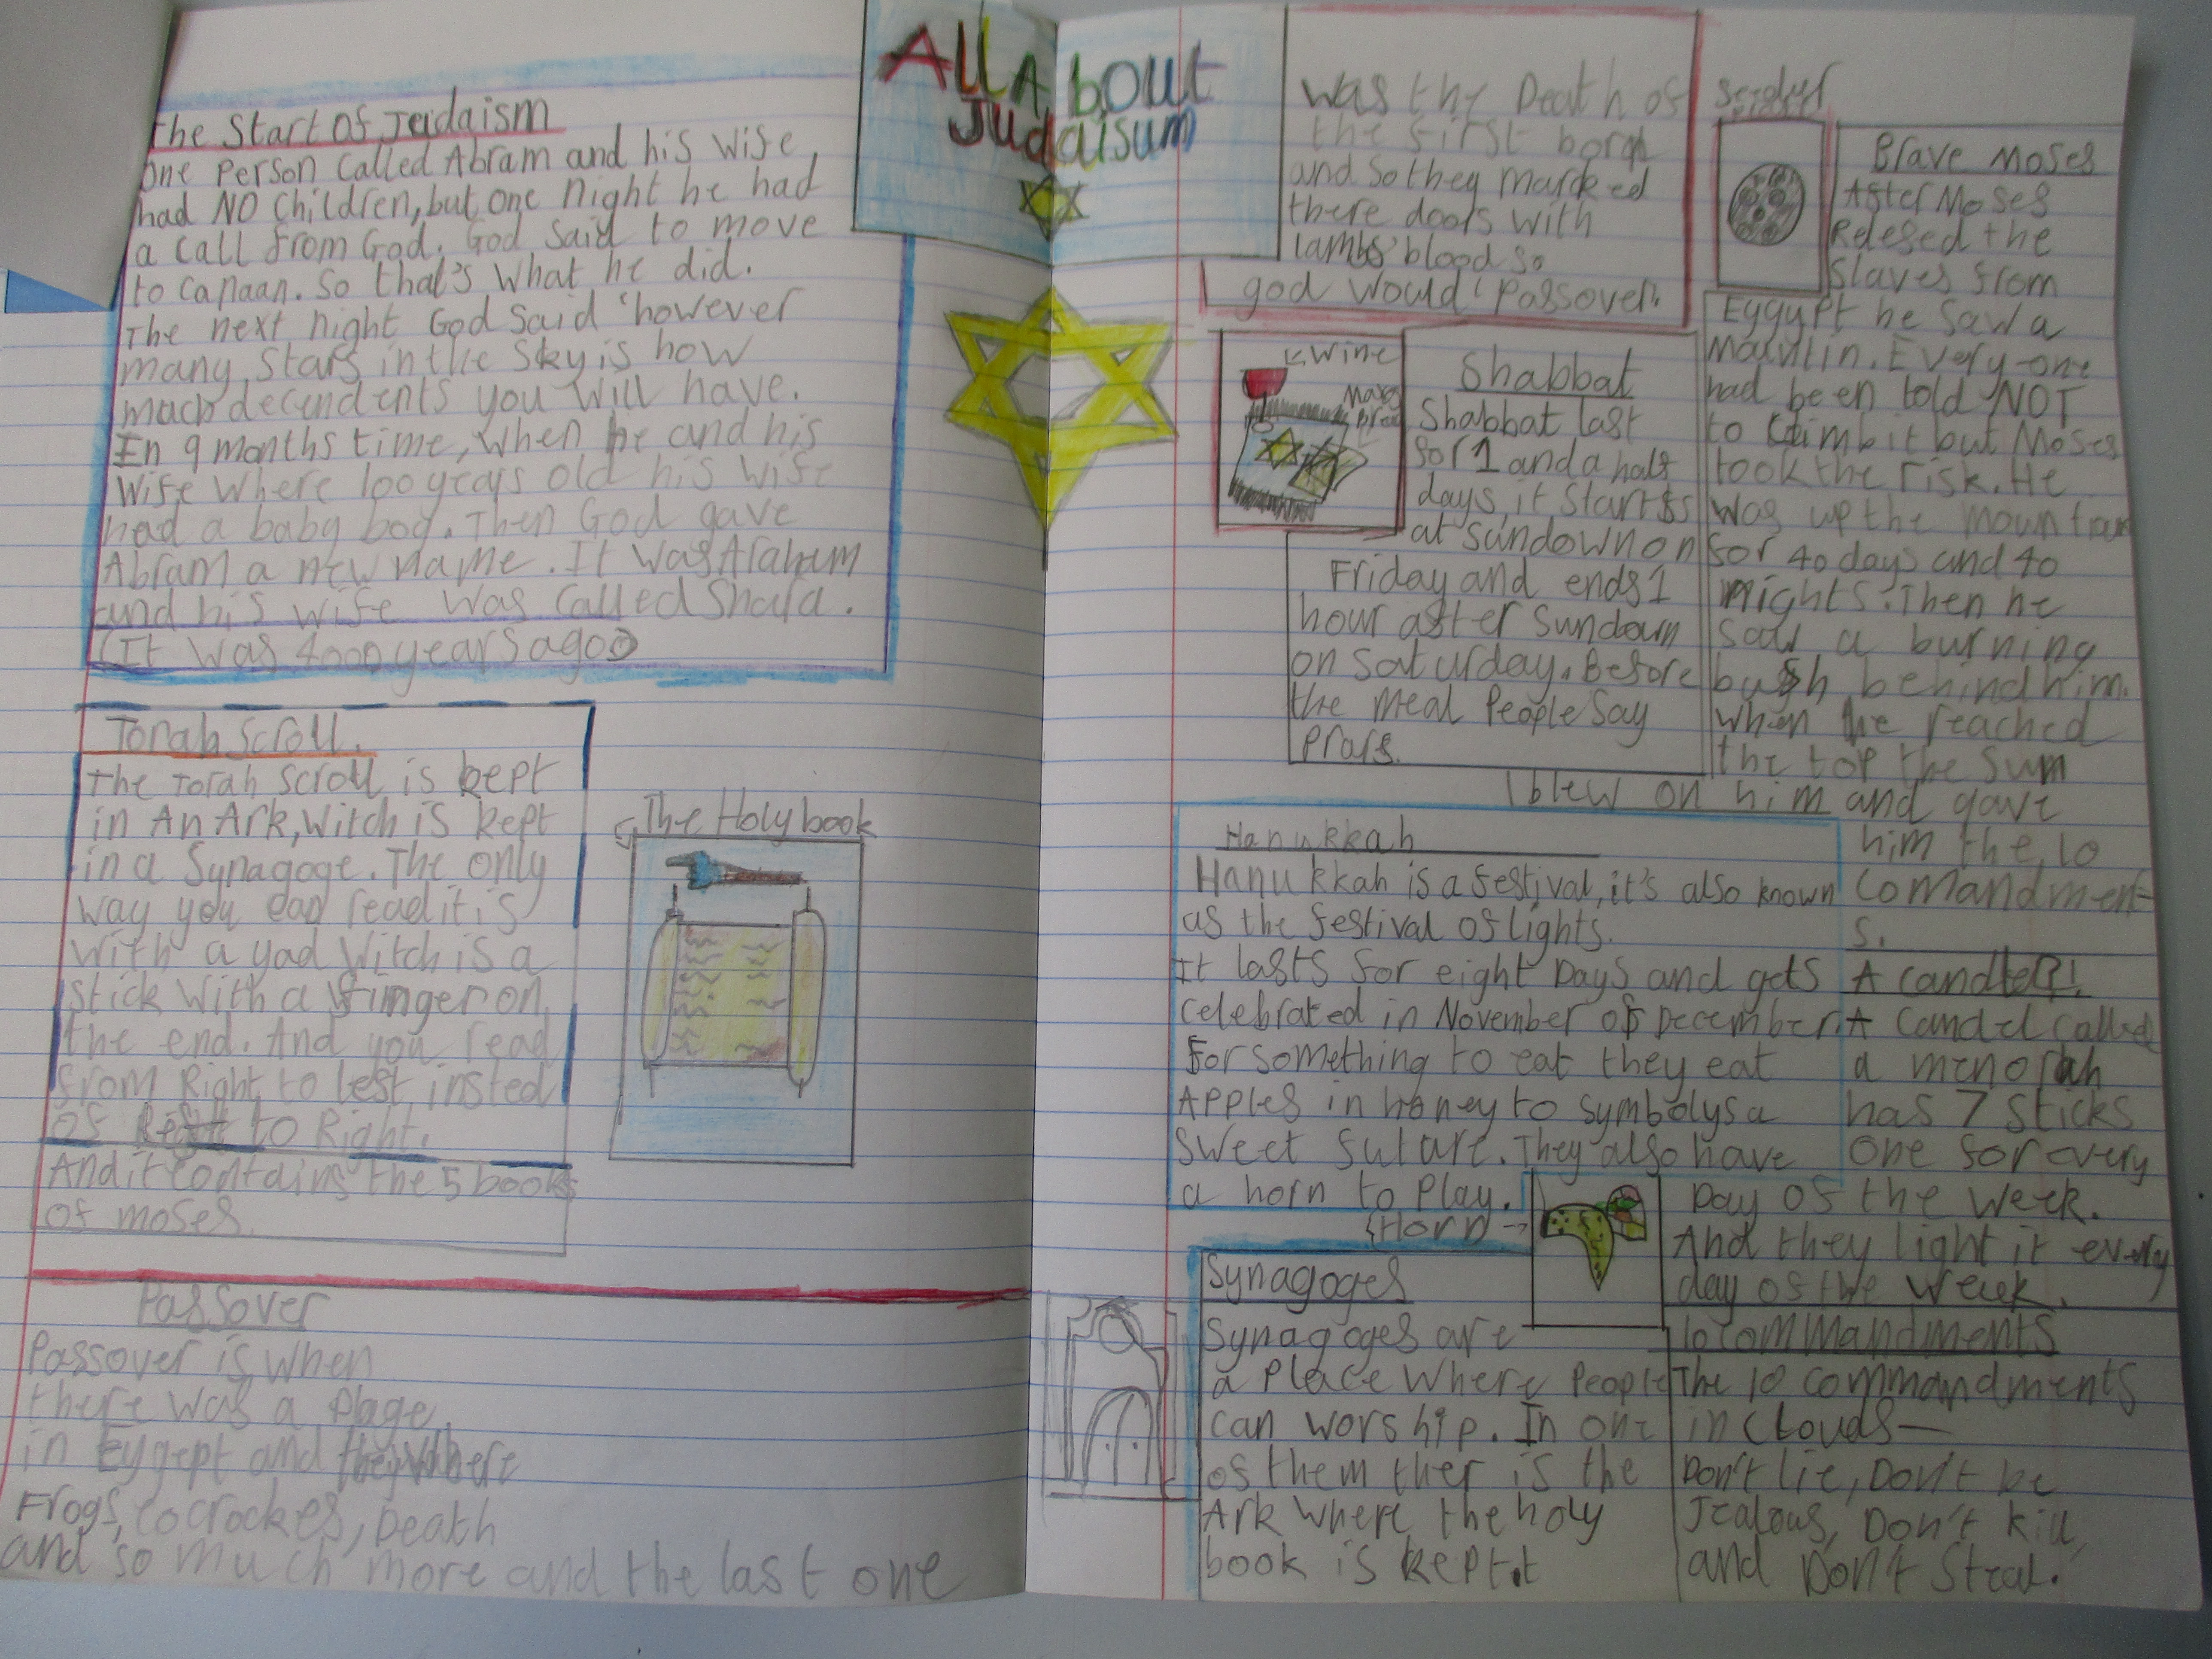 All About
Judaisum
The Start Of Judaism
One Person Called Abram and his wife
had NO Children, but one night he had
a call from God. God said to move
to Canaan. So that's what he did.
The next night God said 'however
many stars in the sky is how
much decendents you will have.
In 9 months time, when he and his
wife where 100 years old his wife
had a baby boy. Then God gave
Abram a new name. It was Araham
and his wife was called Shara.
(It was 4000 years ago)
Torah Scroll.
The Torah scroll is kept
in An Ark, witch is kept
in a Synagoge. The only
way you can read it is
with a yad witch is a
stick with a finger on
the end. And you read
from Right to left insted
of to Right.
And it contains the 5 books
of moses.
The Holy book
Passover
Passover is when
there was a Plage
in Eygept and they where
Frogs, cocrockes, Death
and so much more and the last one
was the Death of
the first born
and so they marked
there doors with
lambs' blood so
god would 'Passover'.
Wine
Shabbat
Shabbat last
for 1 and a half
days, it starts
at sundown on
Friday and ends 1
hour after Sundown
on Saturday. Before
the meal People say
Prars.
Hanukkah
Hanukkah is a festival, it's also known
as the festival of lights.
It lasts for eight Days and gets
celebrated in November of December.
For something to eat they eat
Apples in honey to symbolys a
sweet future. They also have
a horn to Play.
Horn →
Synagoges
Synagoges are
a Place where People
can worship. In one
of them ther is the
Ark where the holy
book is kept.
Brave Moses
After Moses
Relesed the
slaves from
Eygypt he saw a
Mountin. Every-one
had been told NOT
to climb it but Moses
took the risk. He
was up the mountan
for 40 days and 40
nights. Then he
saw a burning
bush behind him.
When he reached
the top the sun
blew on him and gave
him the 10
Comandment-
s.
A candle?!
A Candel called
a menorah
has 7 sticks
one for every
Day of the week.
And they light it every
day of the week.
10 commandments
The 10 commandments
in Clouds—
Don't lie, Don't be
Jealous, Don't kill,
and Don't Steal.